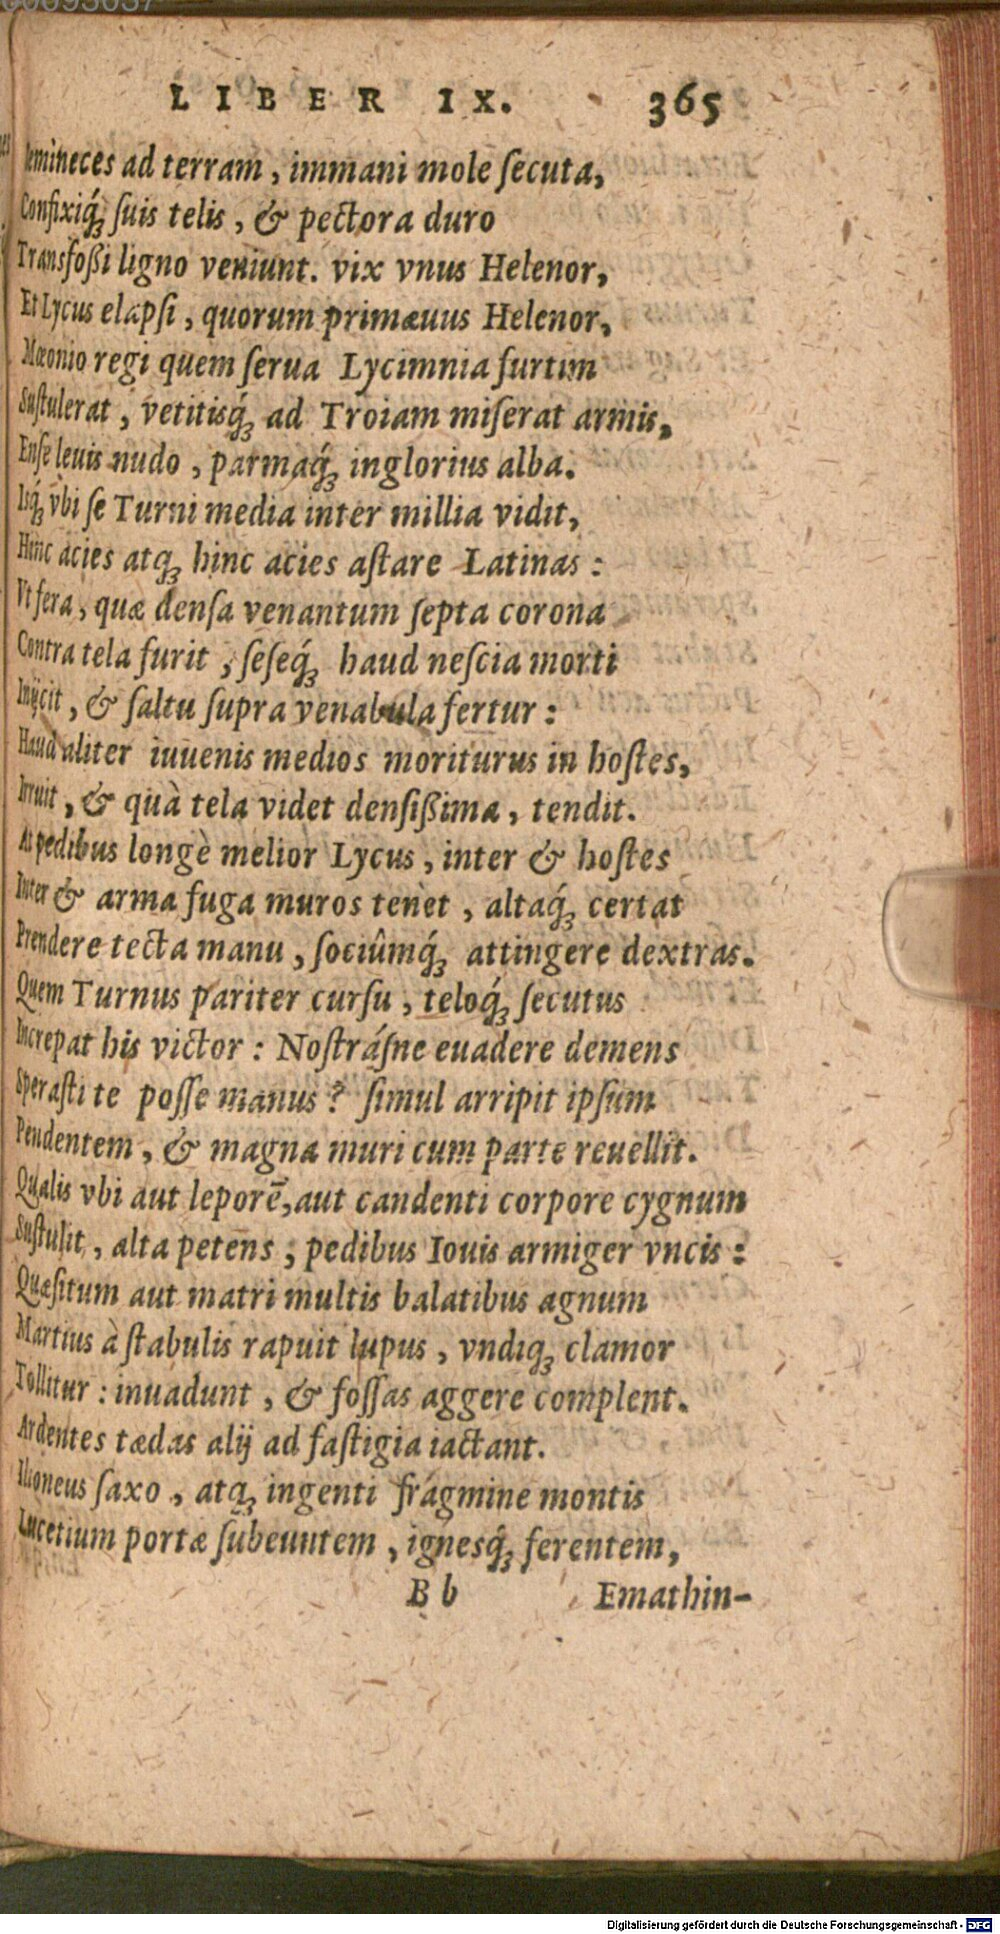 LIBER IX. 365
Semineces ad terram, immani mole ſecuta,
Confixiq́ꝫ ſuis telis, & pectora duro
Transfoßi ligno veniunt. vix vnus Helenor,
Et Lycus elapſi, quorum primæuus Helenor,
Mæonio regi quem ſerua Lycimnia furtim
Suſtulerat, vetitisq́ꝫ ad Troiam miſerat armis,
Enſe leuis nudo, parmaq́ꝫ inglorius alba.
Isq́ꝫ vbi ſe Turni media inter millia vidit,
Hinc acies atqꝫ hinc acies aſtare Latinas:
Vt fera, quæ denſa venantum ſepta corona
Contra tela furit, ſeſeq́ꝫ haud neſcia morti
Inijcit, & ſaltu ſupra venabula fertur:
Haud aliter iuuenis medios moriturus in hoſtes,
Irruit, & quà tela videt denſißima, tendit.
At pedibus longè melior Lycus, inter & hoſtes
Inter & arma fuga muros tenet, altaq́ꝫ certat
Prendere tecta manu, ſociûmq́ꝫ attingere dextras.
Quem Turnus pariter curſu, teloq́ꝫ ſecutus
Increpat his victor: Noſtráſne euadere demens
Speraſti te poſſe manus? ſimul arripit ipſum
Pendentem, & magna muri cum parte reuellit.
Qualis vbi aut leporē, aut candenti corpore cygnum
Suſtulit, alta petens, pedibus Iouis armiger vncis:
Quæſitum aut matri multis balatibus agnum
Martius à ſtabulis rapuit lupus, vndiqꝫ clamor
Tollitur: inuadunt, & foſſas aggere complent.
Ardentes tædas alij ad faſtigia iactant.
Ilioneus ſaxo, atqꝫ ingenti frágmine montis
Lucetium portæ ſubeuntem, ignesq́ꝫ ferentem,
B b Emathin-
Digitalisierung gefördert durch die Deutsche Forschungsgemeinschaft - DFG